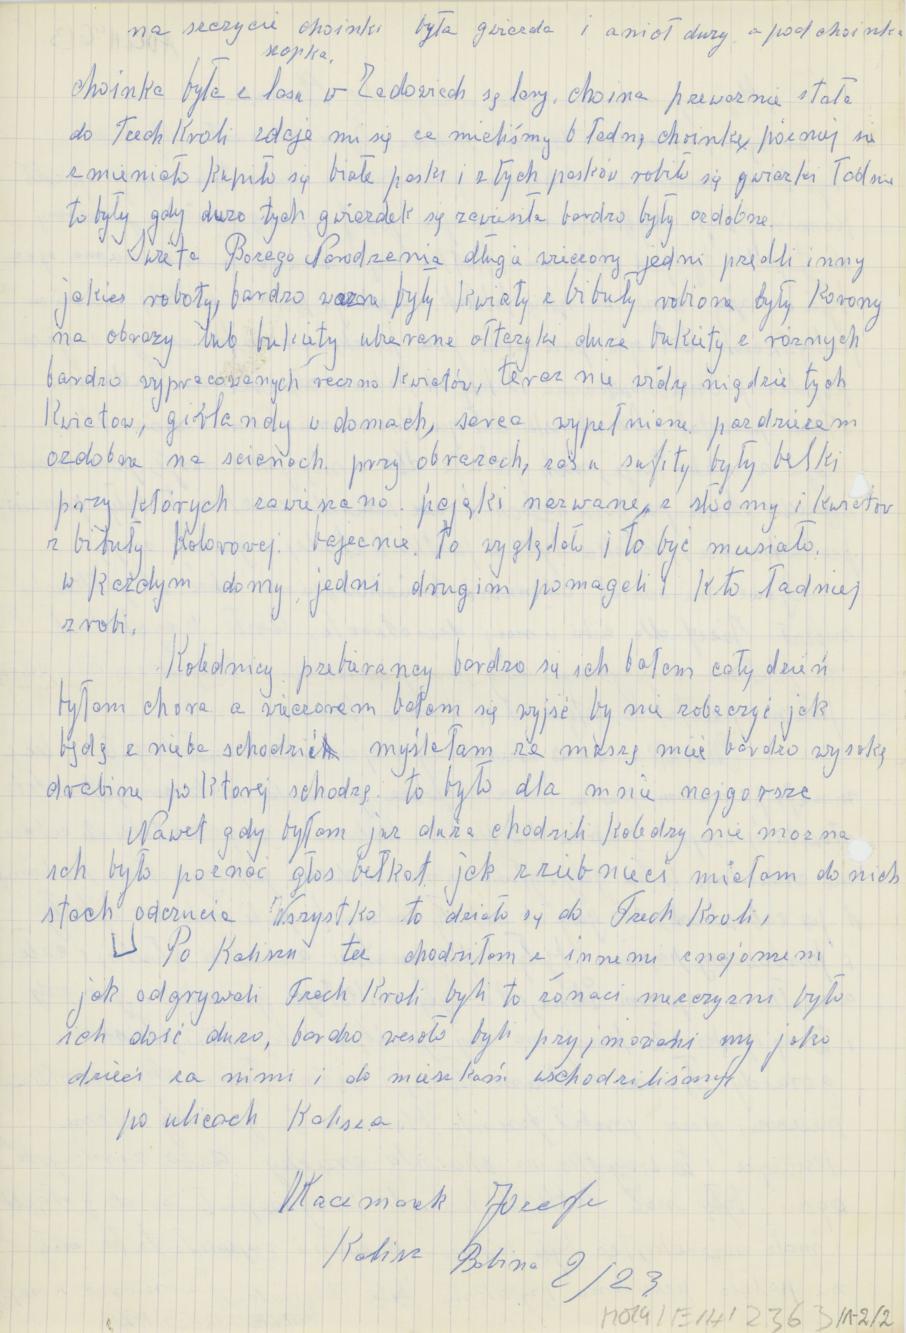 na szczycie choinki była gwiezda i anioł duzy a pod choinka
szopka,
choinka była z lasu w Zadowicach są lasy. choina przewaznie stała
do Trech Kroli zdaje mi się ze mieliśmy ładną choinkę, pozniej sie
zmieniało kupiło są białe paski i z tych pasków robiło się gwiazki ładnie
to były gdy duzo tych gwiezdek są zawiesiła bardzo były ozdobne.
Swięta Bozego Narodzenia długie wieczory jedni prządli inny
jakies roboty, bardzo wazne były kwiaty z bibuły robione były korony
na obrazy lub bukiety ubierane ołtarzyki duze bukiety z róznych
bardzo wypracowanych reczno kwiatów, teraz nie widzę nigdzie tych
kwiatow, girlandy w domach, serca wypełniane pazdzierzem
ozdobne na scienach przy obrazach, zaś u sufity były belki
przy których zawieszano pająki nazwane, z słomy i kwiatow
z bibuły kolorowej bajecnie. To wyglądało i to być musiało.
w kazdym domy jedni drugim pomageli i kto ładniej
zrobi.
Kolednicy przebierancy bardzo są ich bałem cały dzień
byłam chora a wieczorem bałam się wyjść by nie zobaczyć jak
będą z nieba schodzić myślałam ze muszą mieć bardzo wysoką
drabine po ktorej schodzą. to było dla mnie najgorsze
Nawet gdy byłam juz duza chodzili koledzy nie mozna
ich było poznać głos bełkot jak zziebnieci miałam do nich
stach odczucie Wszystko to działo się do Trech Kroli,
Po Kaliszu tez chodziłam z innemi znajomemi
jak odgrywali Trech Kroli byli to zónaci mezczyzni było
ich dość duzo, bardzo wesoło byli przyjmowani my jako
dzieci za nimi i do mieszkań wschodziliśmy
po ulicach Kalisza
Kaczmarek Józefa
Kalisz Babina 2/23
MOZK/E/4/2363/A-2/2